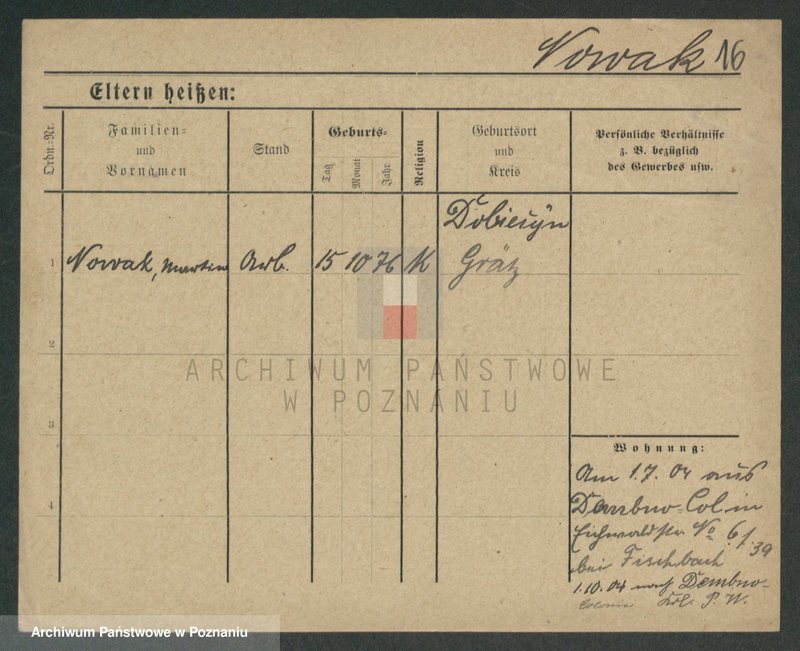 Nowak 16
Eltern heißen:
Ordn.-Nr.
Familien-
und
Vornamen
Stand
Geburts-
Tag
Monat
Jahr
Religion
Geburtsort
und
Kreis
Persönliche Verhältnisse
z. B. bezüglich
des Gewerbes usw.
Dobieżyn
1 Nowak, Martin Arb. 15 10 76 K Grätz
2
3
4
ARCHIWUM PAŃSTWOWE
W POZNANIU
Wohnung:
Am 1.7.04 aus
Col. in
Eichwaldstr No 6 / 39
bei Fischbach
1.10.04 nach Dembno-
Colonie P. W.
Archiwum Państwowe w Poznaniu